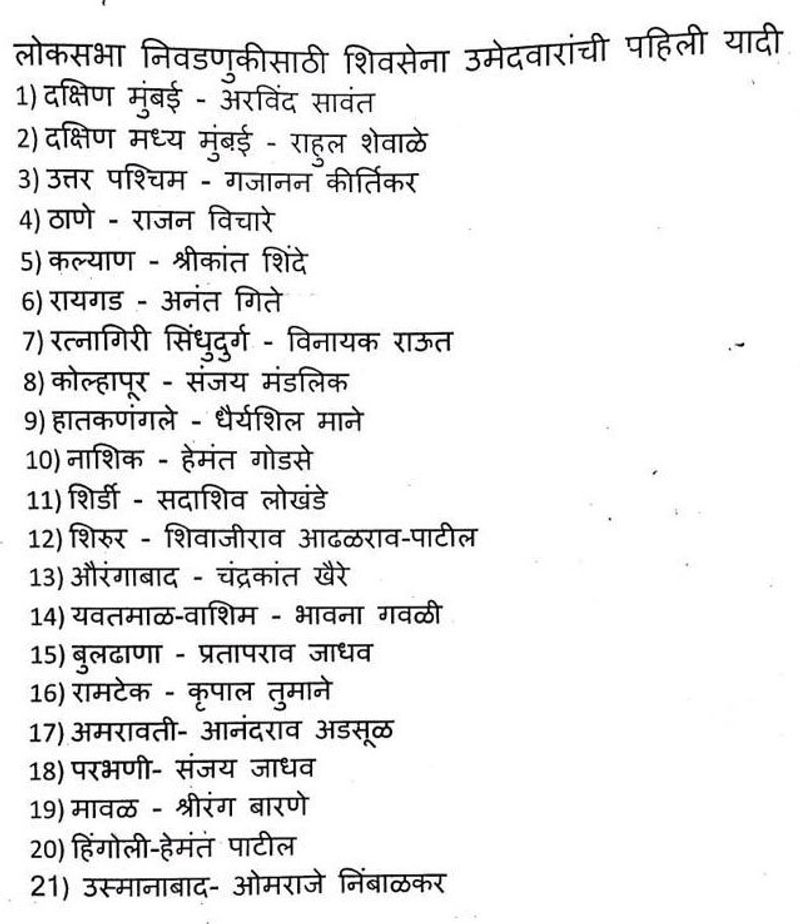 लोकसभा निवडणुकीसाठी शिवसेना उमेदवारांची पहिली यादी
1) दक्षिण मुंबई - अरविंद सावंत
2) दक्षिण मध्य मुंबई - राहुल शेवाळे
3) उत्तर पश्चिम - गजानन कीर्तिकर
4) ठाणे - राजन विचारे
5) कल्याण - श्रीकांत शिंदे
6) रायगड - अनंत गिते
7) रत्नागिरी सिंधुदुर्ग - विनायक राऊत
8) कोल्हापूर - संजय मंडलिक
9) हातकणंगले - धैर्यशिल माने
10) नाशिक - हेमंत गोडसे
11) शिर्डी - सदाशिव लोखंडे
12) शिरुर - शिवाजीराव आढळराव-पाटील
13) औरंगाबाद - चंद्रकांत खैरे
14) यवतमाळ-वाशिम - भावना गवळी
15) बुलढाणा - प्रतापराव जाधव
16) रामटेक - कृपाल तुमाने
17) अमरावती- आनंदराव अडसूळ
18) परभणी- संजय जाधव
19) मावळ - श्रीरंग बारणे
20) हिंगोली-हेमंत पाटील
21) उस्मानाबाद- ओमराजे निंबाळकर